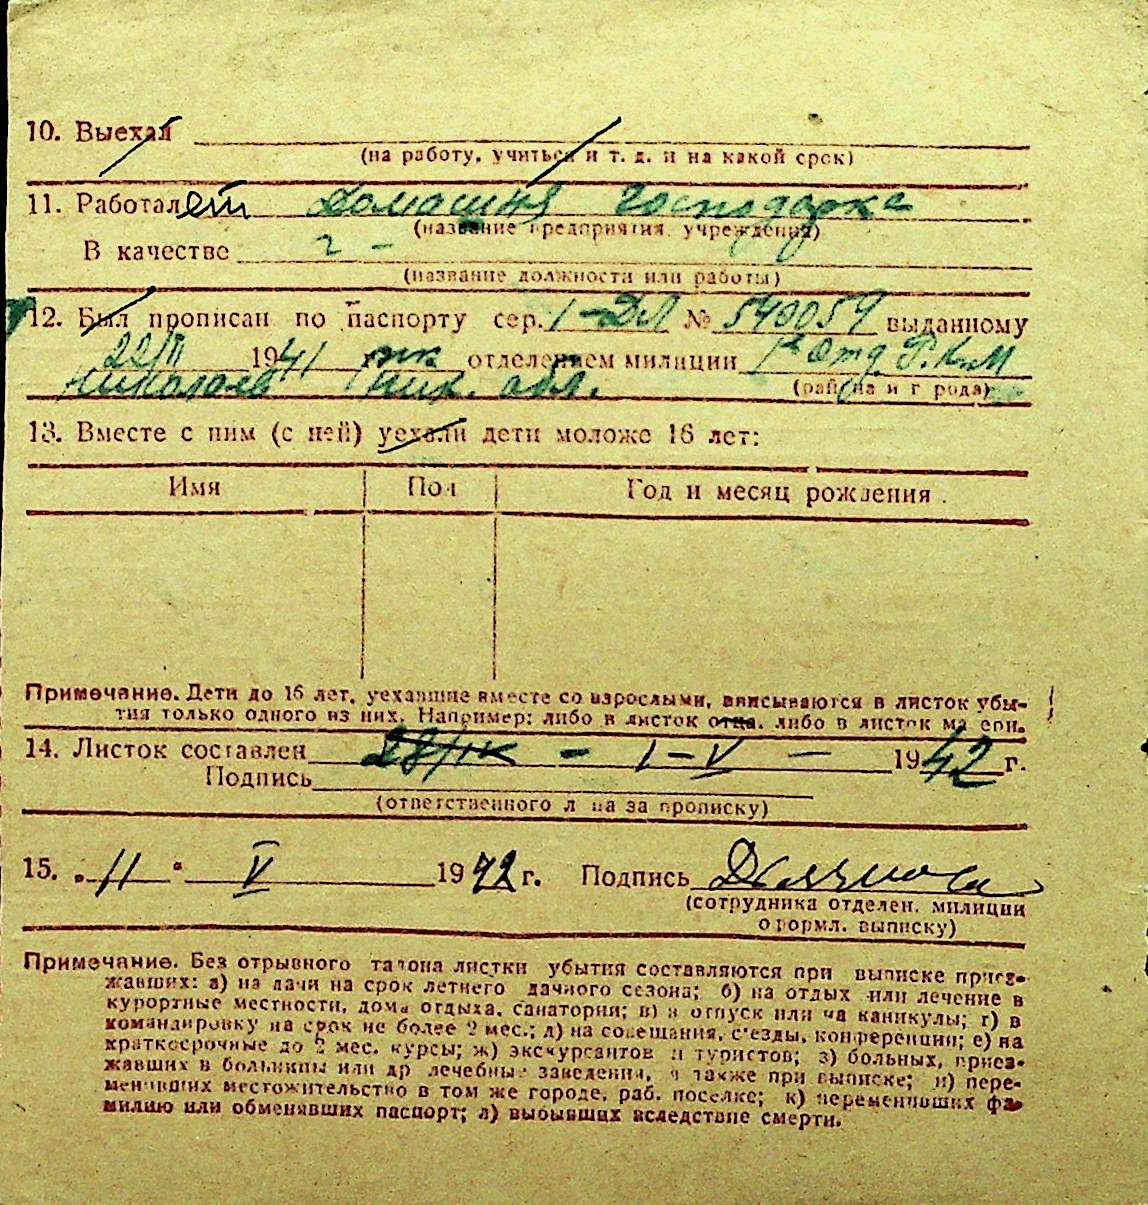 10. Выехал
(на работу, учиться и т. д. и на какой срок)
11. Работает Домашня господарка
(название предприятия, учреждения)
В качестве
(название должности или работы)
12. Был прописан по паспорту сер. 1-ДЛ № 540059 выданному
22/II 1941 отделением милиции 1е отд. Р.К.М
Николаев Ник. обл. (района и города)
13. Вместе с ним (с ней) уехали дети моложе 16 лет:
Имя Пол Год и месяц рождения.
Примечание. Дети до 16 лет, уехавшие вместе со взрослыми, вписываются в листок убы-
тия только одного из них. Например: либо в листок отца, либо в листок матери.
14. Листок составлен - 1-V - 1942 г.
Подпись
(ответственного лица за прописку)
15. "11" V 1942 г. Подпись
(сотрудника отделен. милиции
оформл. выписку)
Примечание. Без отрывного талона листки убытия составляются при выписке приез-
жавших: а) на дачи на срок летнего дачного сезона; б) на отдых или лечение в
курортные местности, дома отдыха, санатории; в) в отпуск или на каникулы; г) в
командировку на срок не более 2 мес.; д) на совещания, съезды, конференции; е) на
краткосрочные до 2 мес. курсы; ж) экскурсантов и туристов; з) больных, приез-
жавших в больницы или др лечебные заведения, а также при выписке; и) пере-
менивших местожительство в том же городе, раб. поселке; к) переменивших фа-
милию или обменявших паспорт; л) выбывших вследствие смерти.